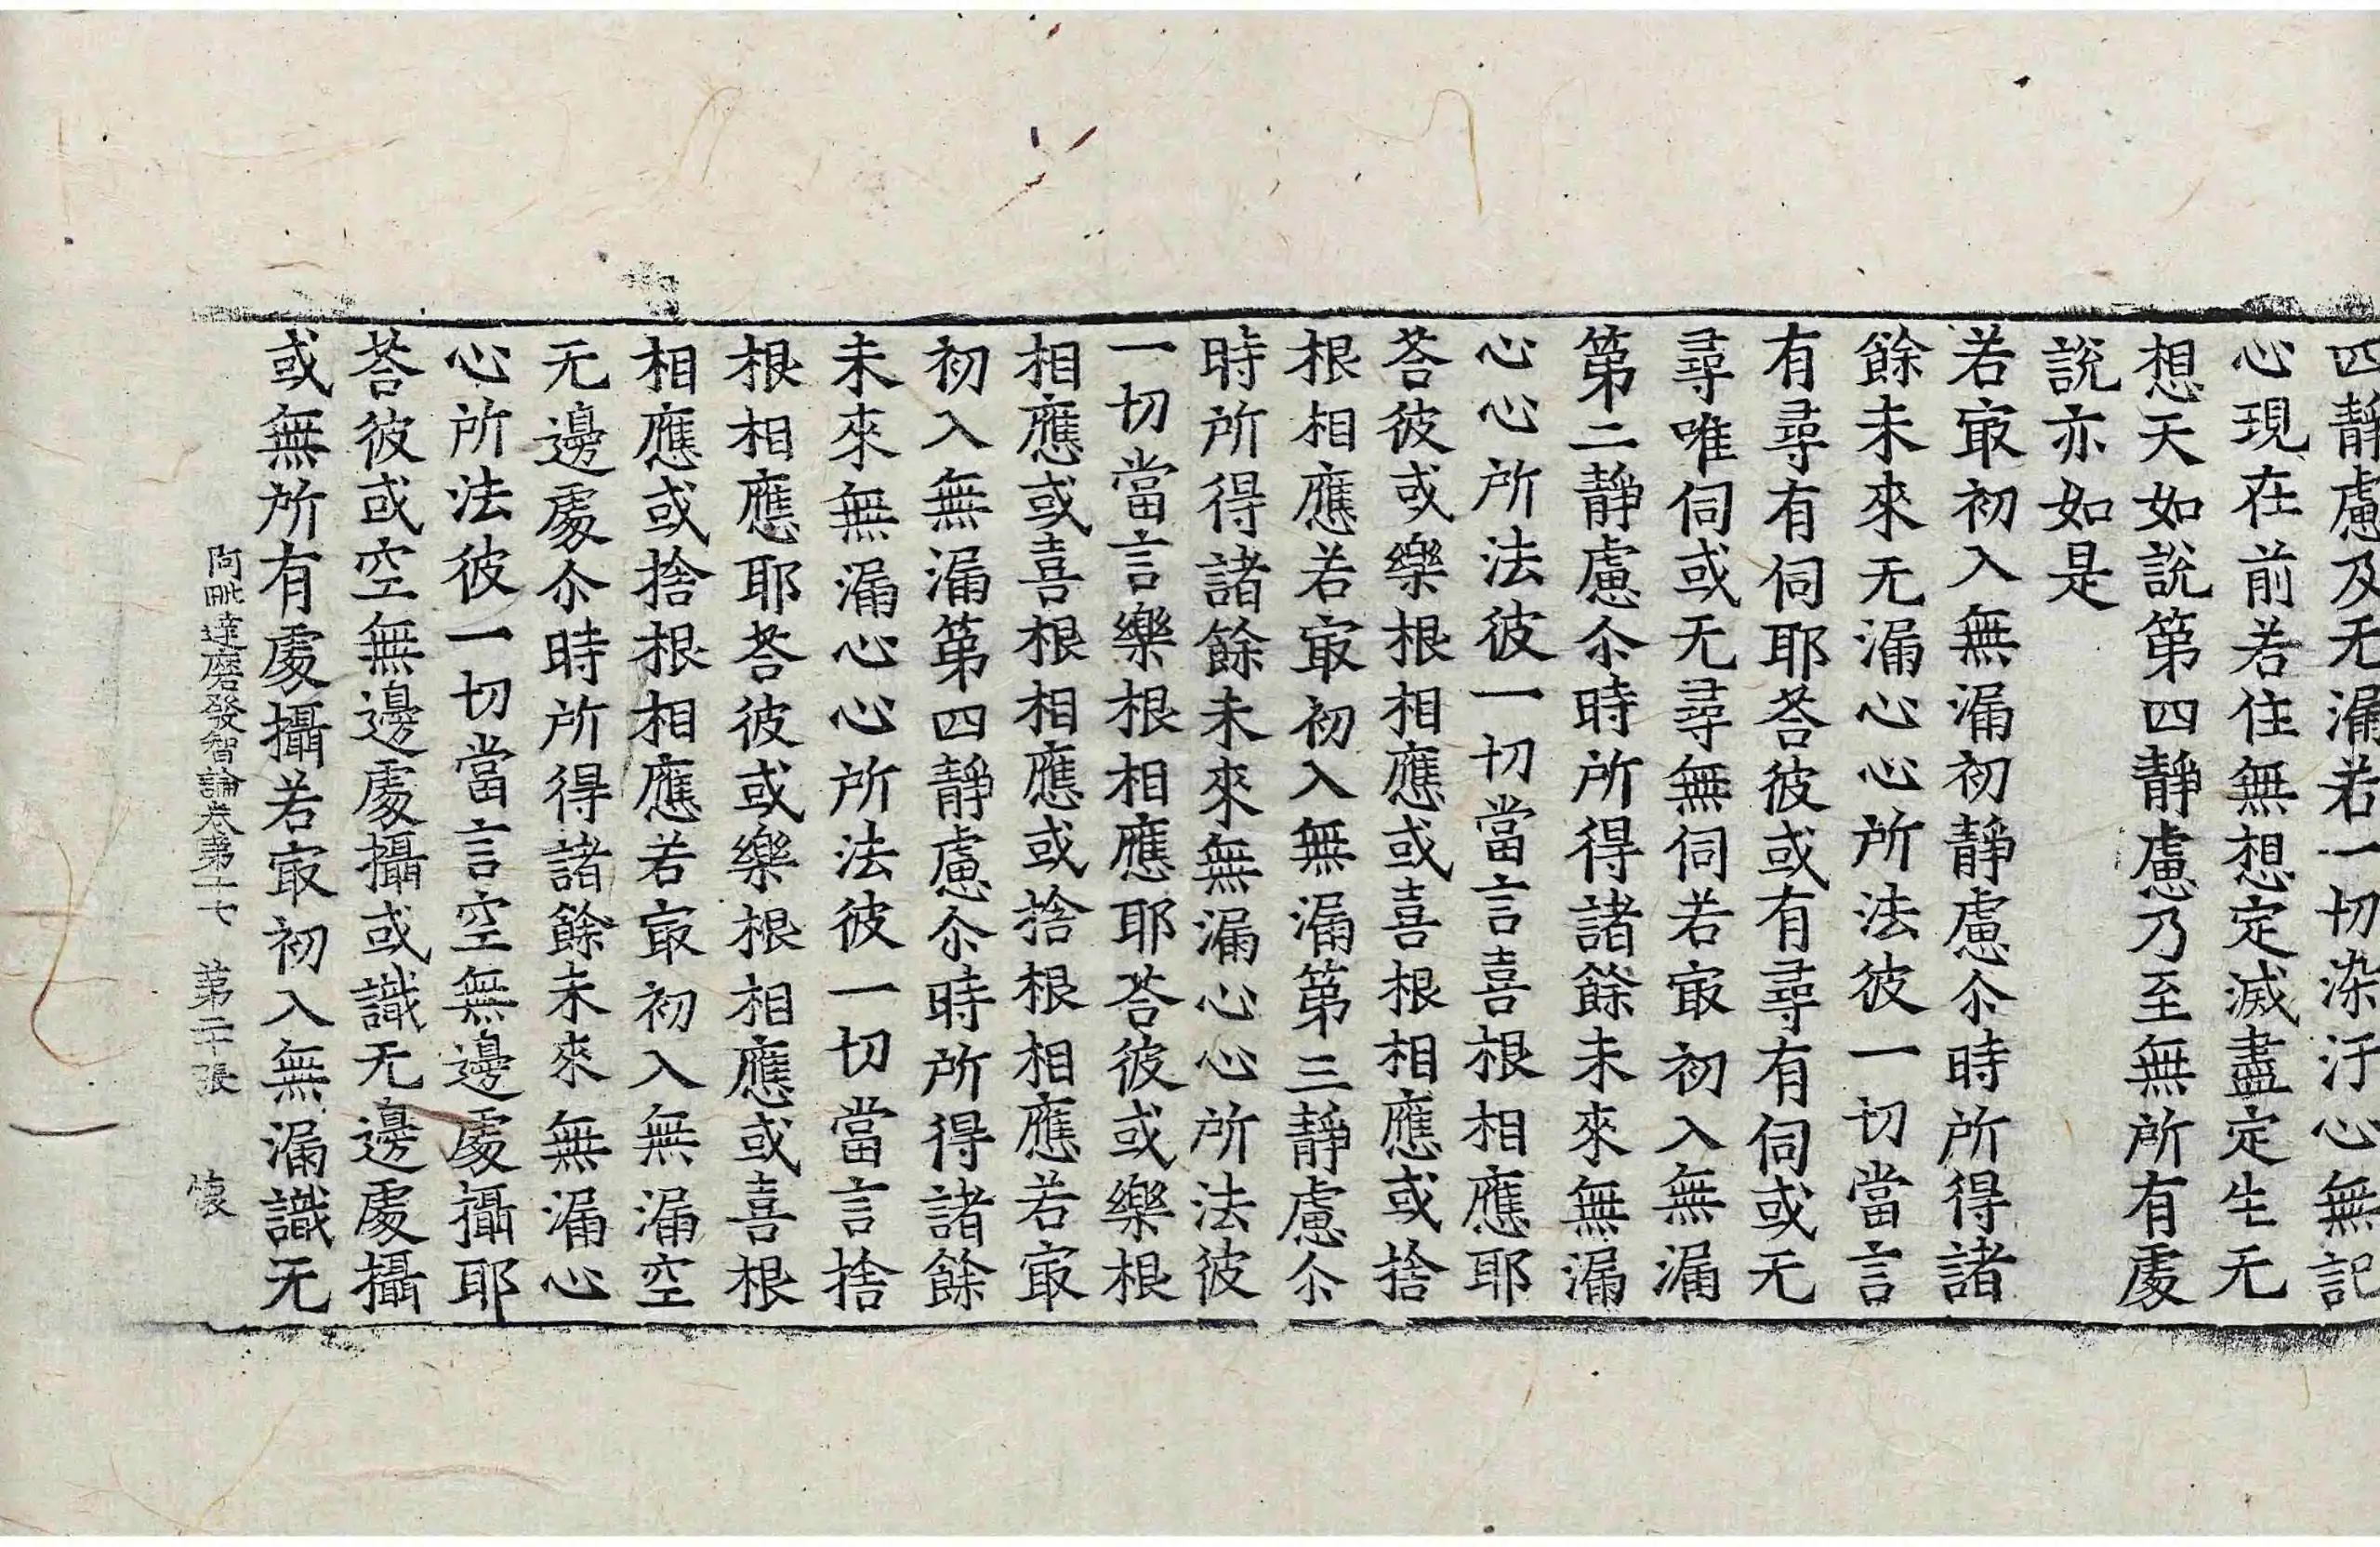 四静慮及无漏若一切染汙心無記
心現在前若住無想定滅盡定生无
想天如說第四静慮乃至無所有處
說亦如是
若㝡初入無漏初静慮尒時所得諸
餘未來无漏心心所法彼一切當言
有尋有伺耶荅彼或有尋有伺或无
尋唯伺或无尋無伺若㝡初入無漏
第二静慮尒時所得諸餘未來無漏
心心所法彼一切當言喜根相應耶
荅彼或樂根相應或喜根相應或捨
根相應若㝡初入無漏第三静慮尒
時所得諸餘未來無漏心心所法彼
一切當言樂根相應耶荅彼或樂根
相應或喜根相應或捨根相應若㝡
初入無漏第四静慮尒時所得諸餘
未來無漏心心所法彼一切當言捨
根相應耶荅彼或樂根相應或喜根
相應或捨根相應若㝡初入無漏空
无邊處尒時所得諸餘未來無漏心
心所法彼一切當言空無邊處攝耶
荅彼或空無邊處攝或識无邊處攝
或無所有處攝若㝡初入無漏識无
阿毗達磨發智論卷第十七 第二十張 懐